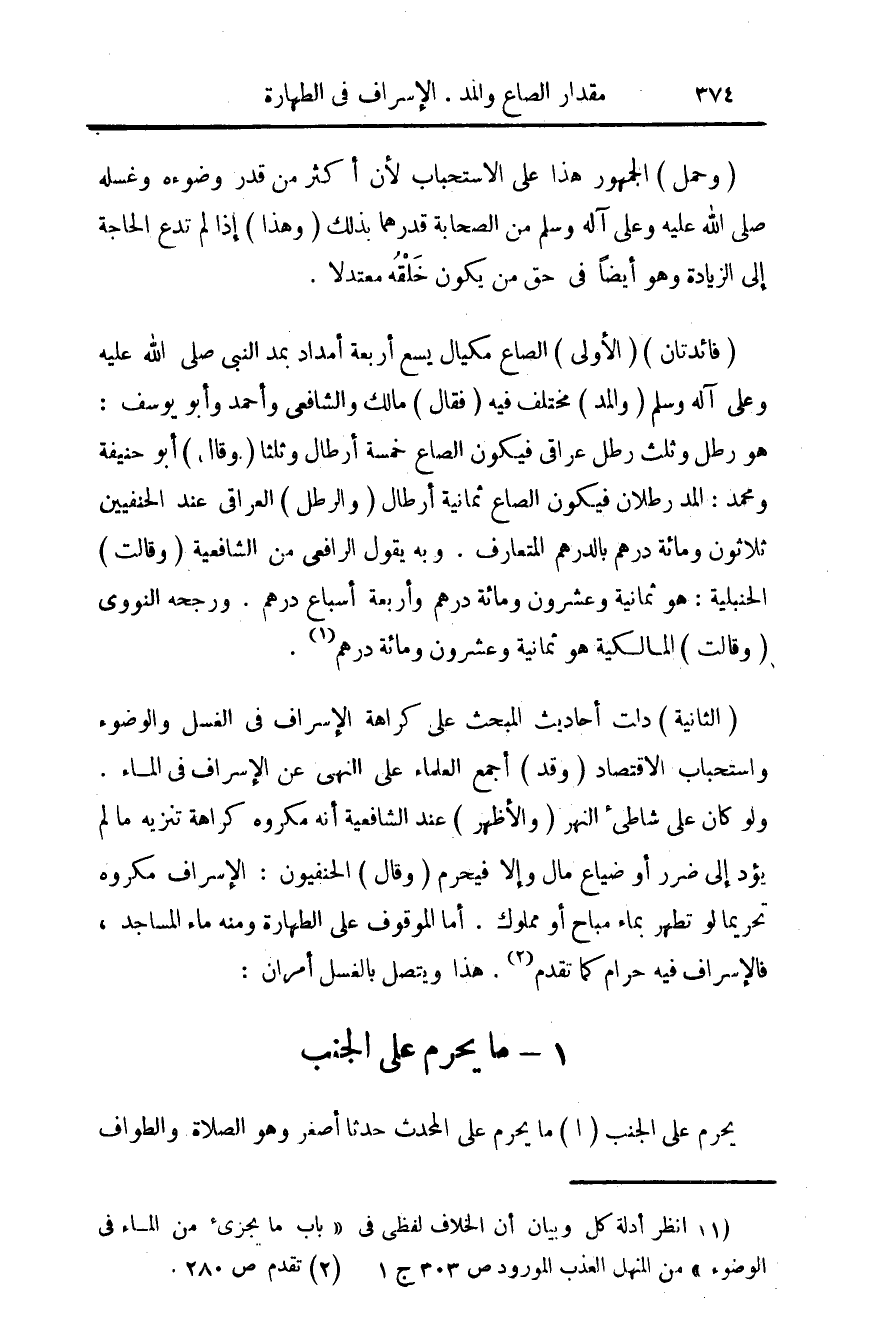 ٣٧٤ مقدار الصاع والمد . الإسراف فى الطهارة
( وحمل ) الجمهور هذا على الاستحباب لأن أكثر من قدر وضوءه وغسله
صلى الله عليه وعلى آله وسلم من الصحابة قدرهما بذلك ( وهذا ) إذا لم تدع الحاجة
إلى الزيادة وهو أيضاً فى حق من يكون خَلْقُه معتدلا .
( فائدتان ) ( الأولى ) الصاع مكيال يسع أربعة أمداد بمد النبى صلى الله عليه
وعلى آله وسلم ( والمد ) مختلف فيه ( فقال ) مالك والشافعى وأحمد وأبو يوسف :
هو رطل وثلث رطل عراقى فيكون الصاع خمسة أرطال وثلثا ( وقال ) أبو حنيفة
ومحمد : المد رطلان فيكون الصاع ثمانية أرطال ( والرطل ) العراقى عند الحنفيين
ثلاثون ومائة درهم بالدرهم المتعارف . وبه يقول الرافعى من الشافعية ( وقالت )
الحنبلية : هو ثمانية وعشرون ومائة درهم وأربعة أسباع درهم . ورجحه النووى
( وقالت ) المالكية هو ثمانية وعشرون ومائة درهم(١) .
( الثانية ) دلت أحاديث المبحث على كراهة الإسراف فى الغسل والوضوء
واستحباب الاقتصاد ( وقد ) أجمع العلماء على النهى عن الإسراف فى الماء .
ولو كان على شاطىء النهر ( والأظهر ) عند الشافعية أنه مكروه كراهة تنزيه ما لم
يؤد إلى ضرر أو ضياع مال وإلا فيحرم ( وقال ) الحنفيون : الإسراف مكروه
تحريما لو تطهر بماء مباح أو مملوك . أما الموقوف على الطهارة ومنه ماء المساجد ،
فالإسراف فيه حرام كما تقدم(٢) . هذا ويتصل بالغسل أمران :
١ – ما يحرم على الجنب
يحرم على الجنب ( ا ) ما يحرم على المحدث حدثا أصغر وهو الصلاة والطواف
(١) انظر أدلة كل وبيان أن الخلاف لفظى فى « باب ما يجزىء من الماء فى
الوضوء » من المنهل العذب المورود ص ٣٠٣ ج ١ (٢) تقدم ص ٢٨٠ .